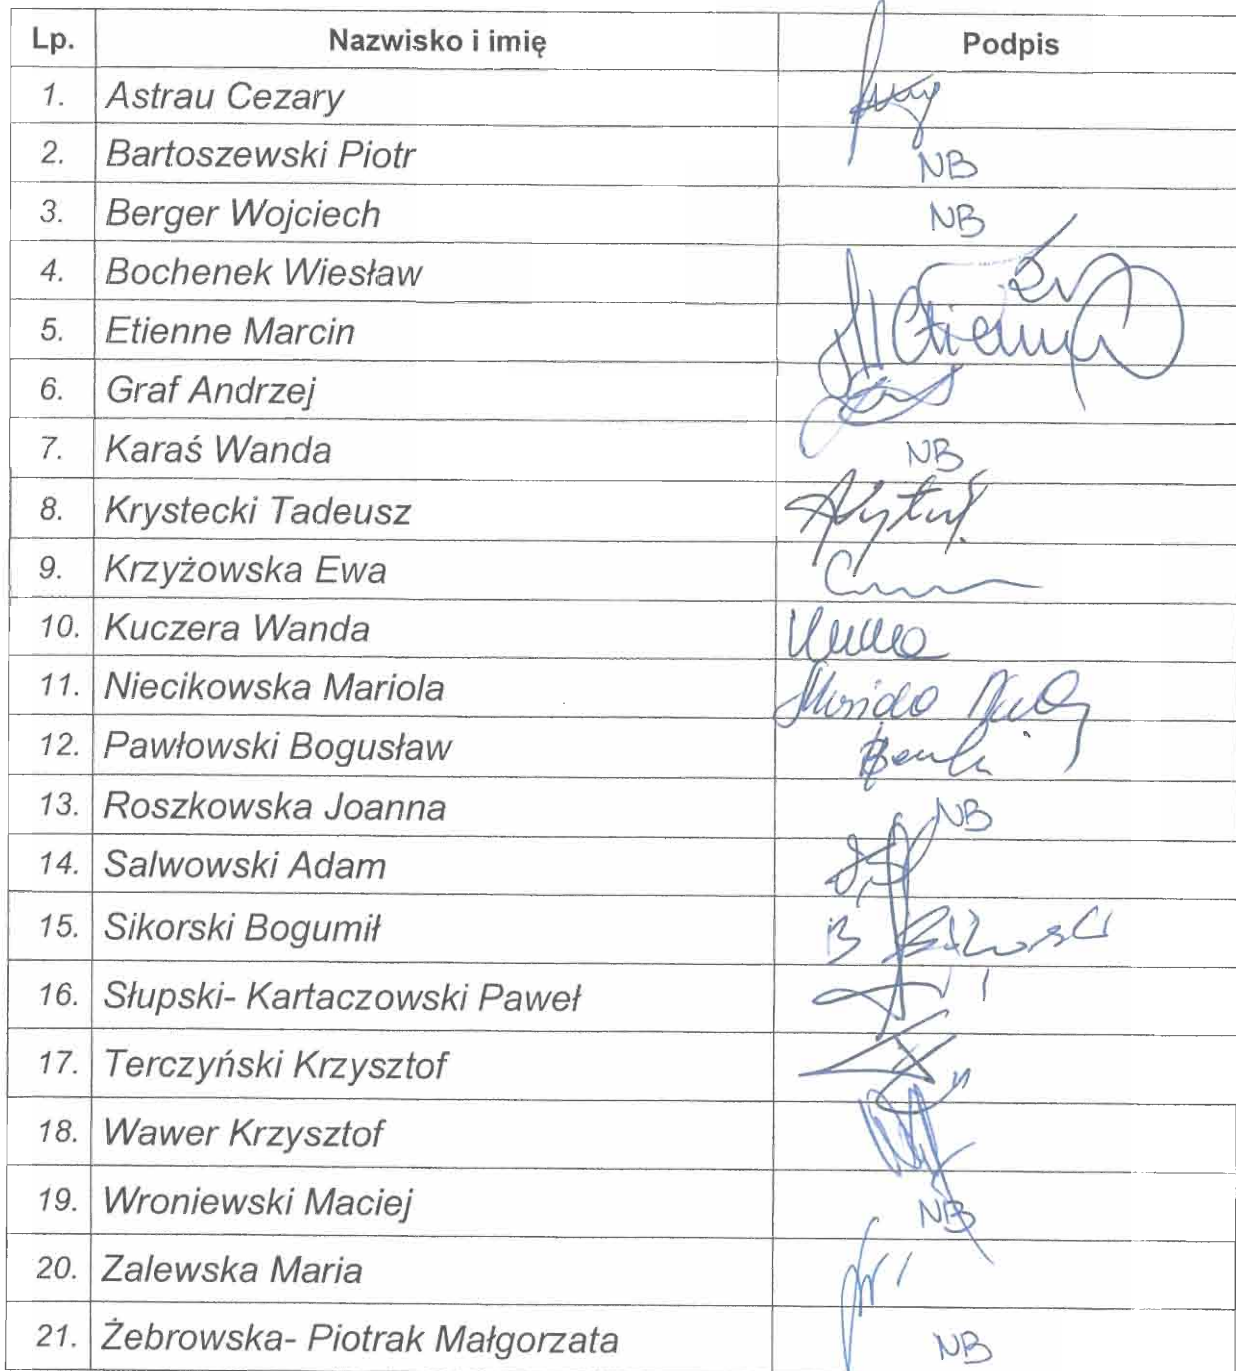 Lp. Nazwisko i imię Podpis
1. Astrau Cezary
2. Bartoszewski Piotr NB
3. Berger Wojciech NB
4. Bochenek Wiesław
5. Etienne Marcin
6. Graf Andrzej
7. Karaś Wanda NB
8. Krystecki Tadeusz
9. Krzyżowska Ewa
10. Kuczera Wanda
11. Niecikowska Mariola
12. Pawłowski Bogusław
13. Roszkowska Joanna NB
14. Salwowski Adam
15. Sikorski Bogumił
16. Słupski- Kartaczowski Paweł
17. Terczyński Krzysztof
18. Wawer Krzysztof
19. Wroniewski Maciej NB
20. Zalewska Maria
21. Żebrowska- Piotrak Małgorzata NB